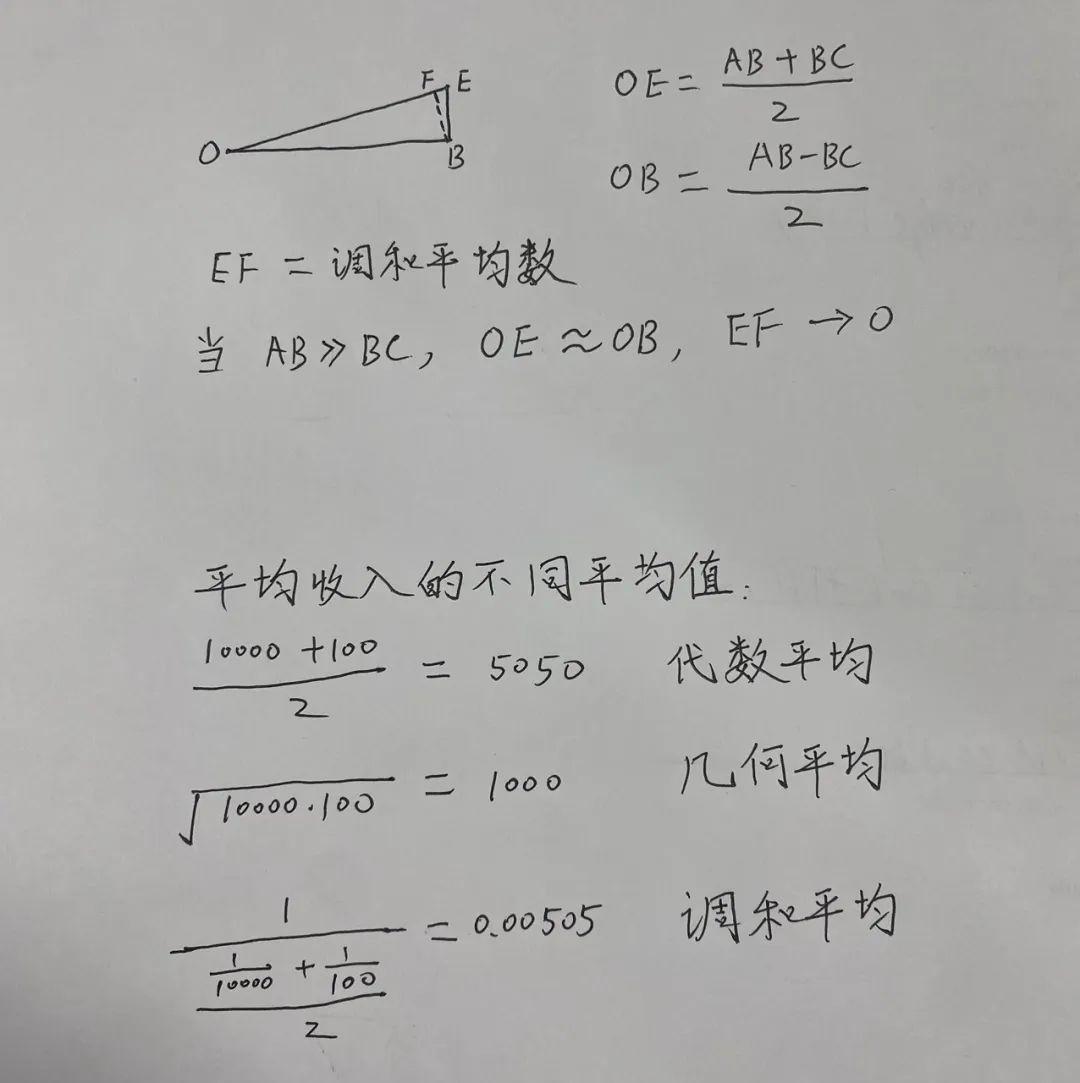 F E
O B
OE = (AB + BC)/2
OB = (AB - BC)/2
EF = 调和平均数
当 AB ≫ BC, OE ≈ OB, EF → 0
平均收入的不同平均值:
(10000 + 100)/2 = 5050 代数平均
√(10000·100) = 1000 几何平均
1/((1/10000 + 1/100)/2) = 0.00505 调和平均